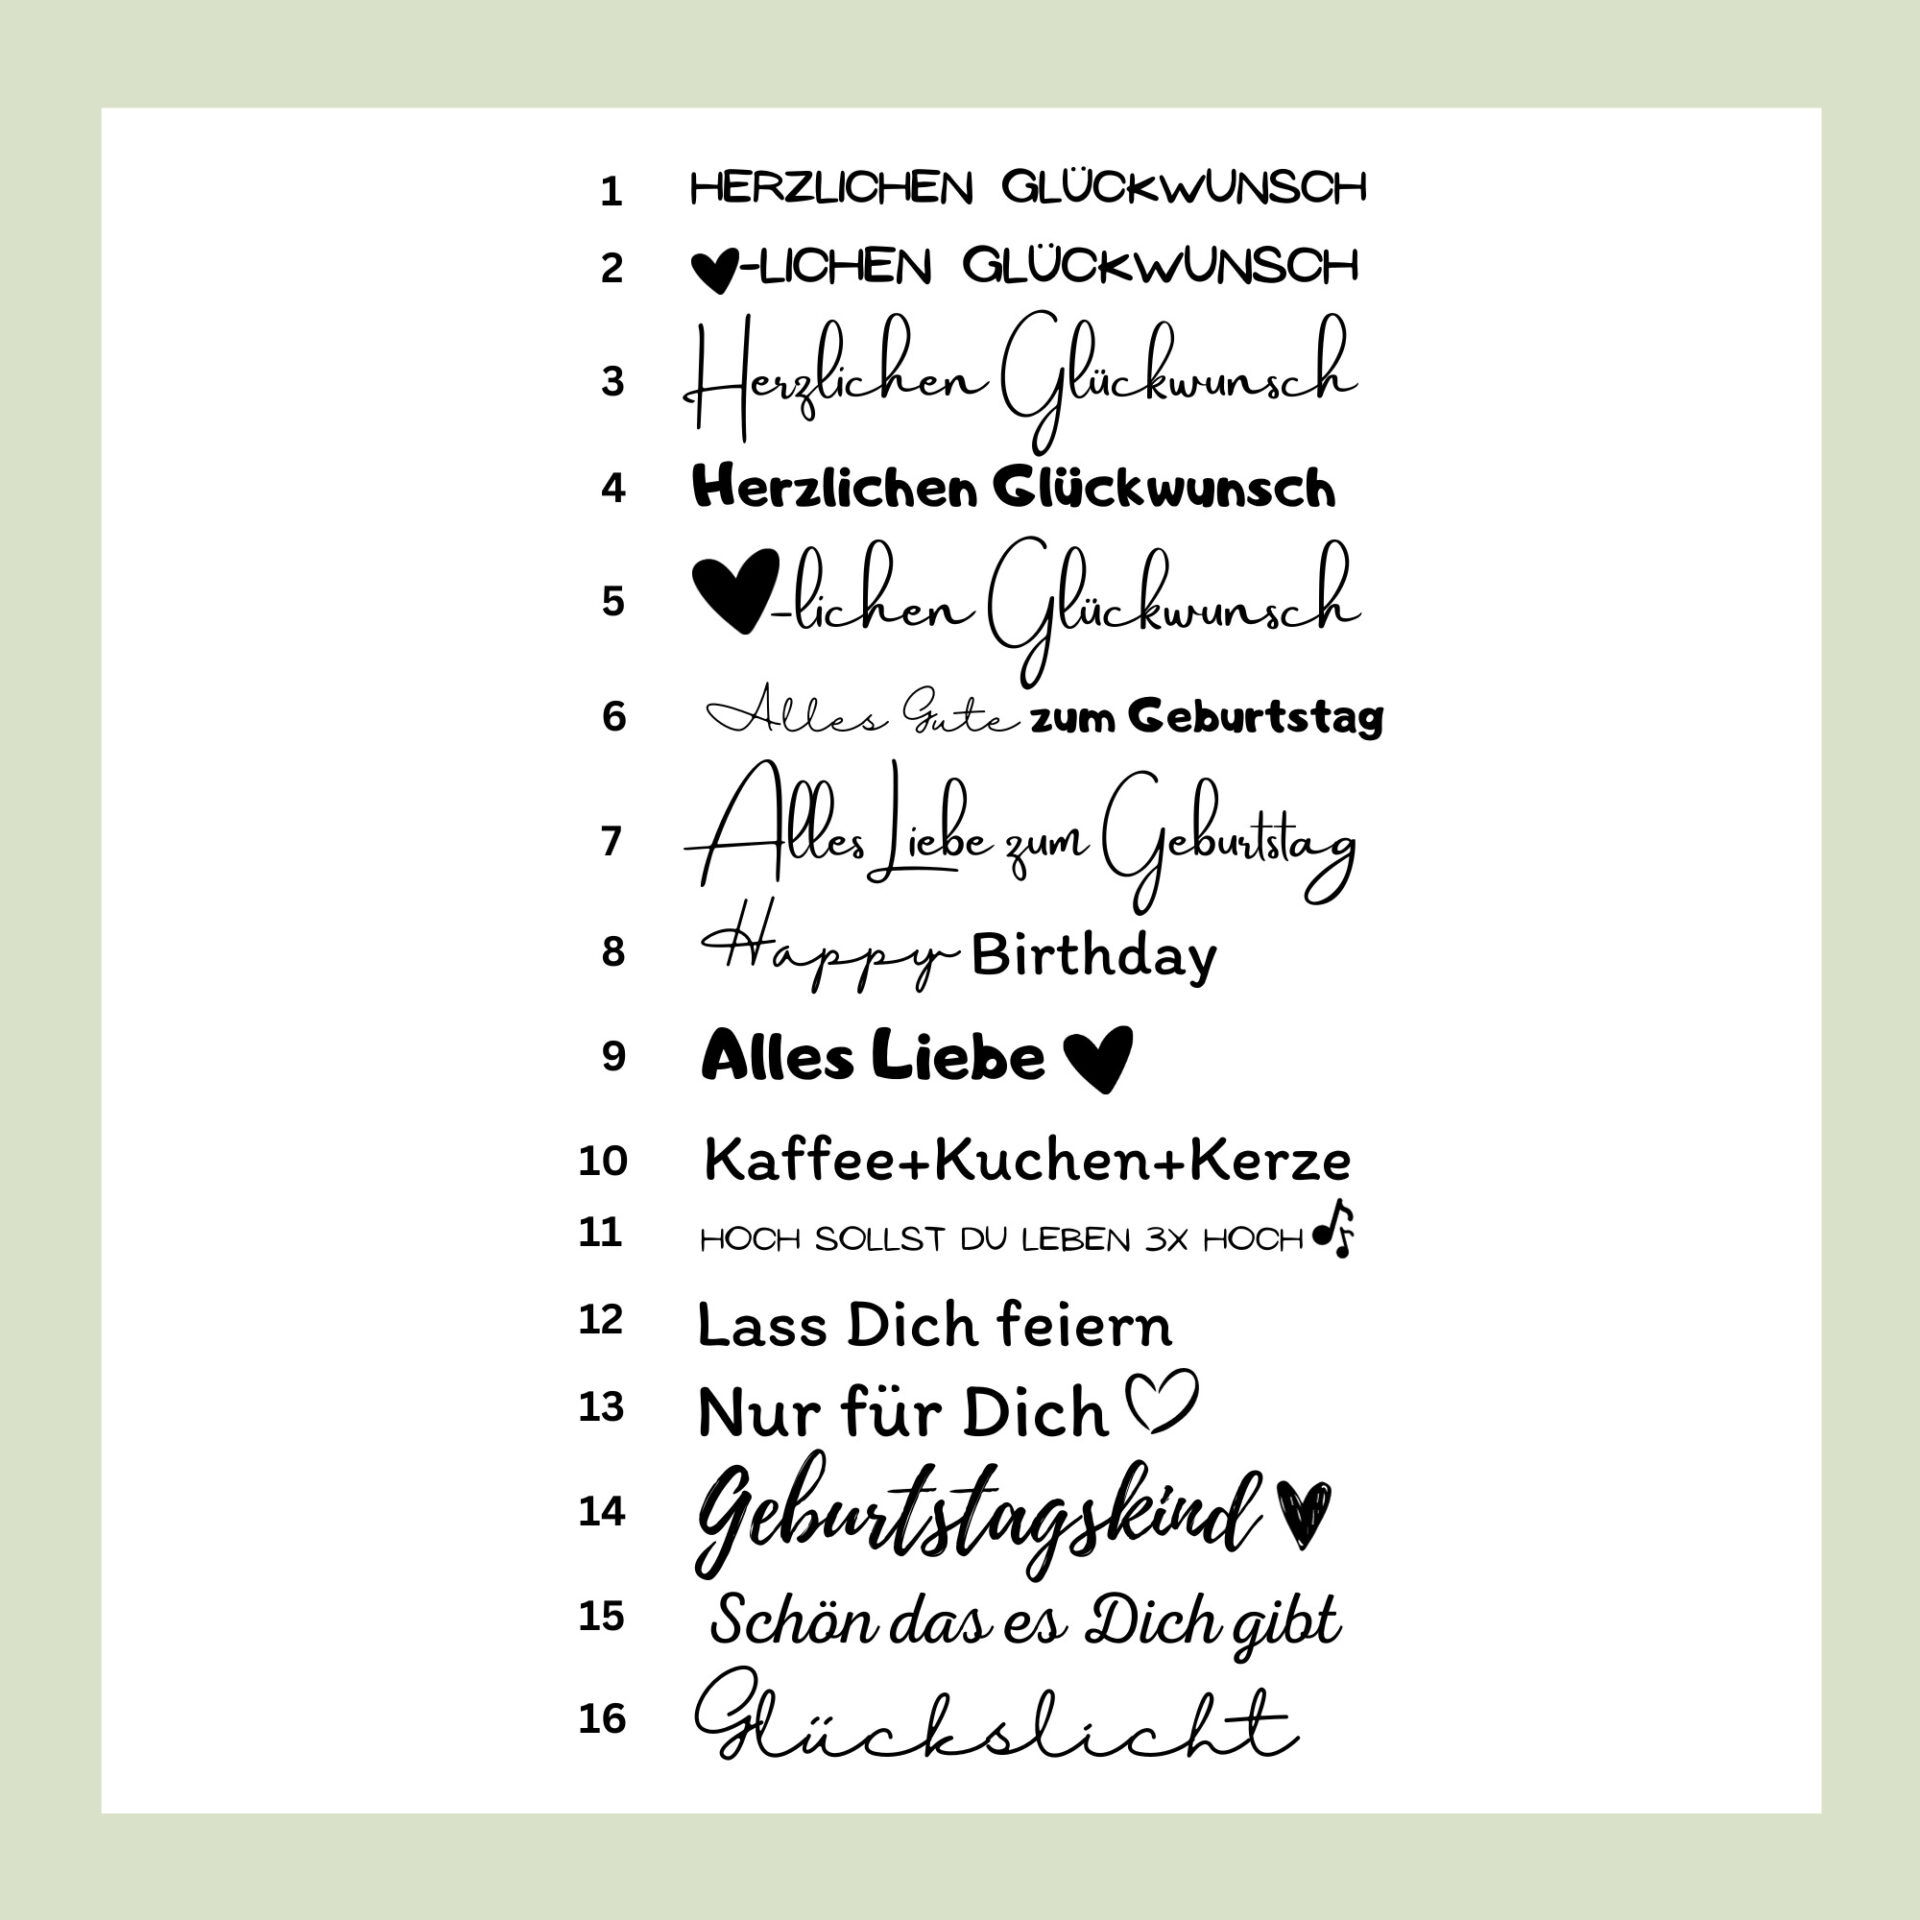 1 HERZLICHEN GLÜCKWUNSCH
2 ♥-LICHEN GLÜCKWUNSCH
3 Herzlichen Glückwunsch
4 Herzlichen Glückwunsch
5 ♥-lichen Glückwunsch
6 Alles Gute zum Geburtstag
7 Alles Liebe zum Geburtstag
8 Happy Birthday
9 Alles Liebe ♥
10 Kaffee+Kuchen+Kerze
11 HOCH SOLLST DU LEBEN 3X HOCH ♪
12 Lass Dich feiern
13 Nur für Dich ♡
14 Geburtstagskind ♥
15 Schön das es Dich gibt
16 Glückslicht